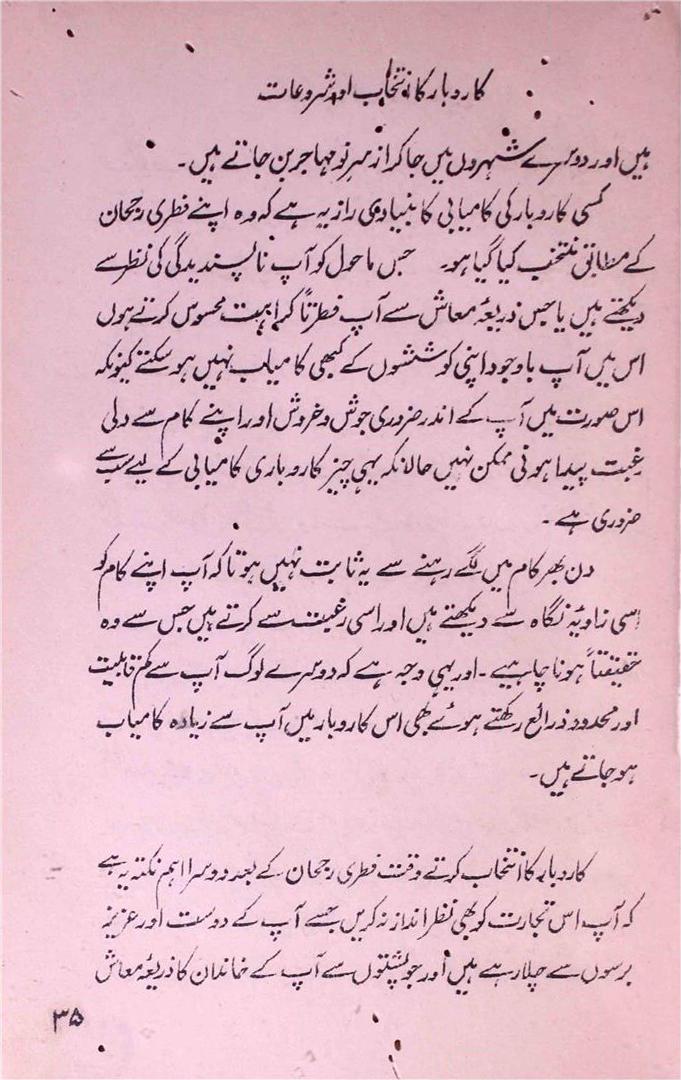 کاروبار کا انتخاب اور شروعات
ہیں اور دوسرے شہروں میں جا کر از سرِ نو مہاجر بن جاتے ہیں۔
کسی کاروبار کی کامیابی کا بنیادی راز یہ ہے کہ وہ اپنے فطری رجحان
کے مطابق منتخب کیا گیا ہو۔ جس ماحول کو آپ ناپسندیدگی کی نظر سے
دیکھتے ہیں یا جس ذریعۂ معاش سے آپ فطرتاً کراہیت محسوس کرتے ہوں
اس میں آپ باوجود اپنی کوششوں کے کبھی کامیاب نہیں ہو سکتے کیونکہ
اس صورت میں آپ کے اندر ضروری جوش و خروش اور اپنے کام سے دلی
رغبت پیدا ہونی ممکن نہیں حالانکہ یہی چیز کاروباری کامیابی کے لیے سب سے
ضروری ہے۔
دن بھر کام میں لگے رہنے سے یہ ثابت نہیں ہوتا کہ آپ اپنے کام کو
اسی زاویۂ نگاہ سے دیکھتے ہیں اور اسی رغبت سے کرتے ہیں جس سے وہ
حقیقتاً ہونا چاہیے۔ اور یہی وجہ ہے کہ دوسرے لوگ آپ سے کم قابلیت
اور محدود ذرائع رکھتے ہوئے بھی اس کاروبار میں آپ سے زیادہ کامیاب
ہو جاتے ہیں۔
کاروبار کا انتخاب کرتے وقت فطری رجحان کے بعد دوسرا اہم نکتہ یہ ہے
کہ آپ اس تجارت کو بھی نظر انداز نہ کریں جسے آپ کے دوست اور عزیز
برسوں سے چلا رہے ہیں اور جو پشتوں سے آپ کے خاندان کا ذریعۂ معاش
۳۵